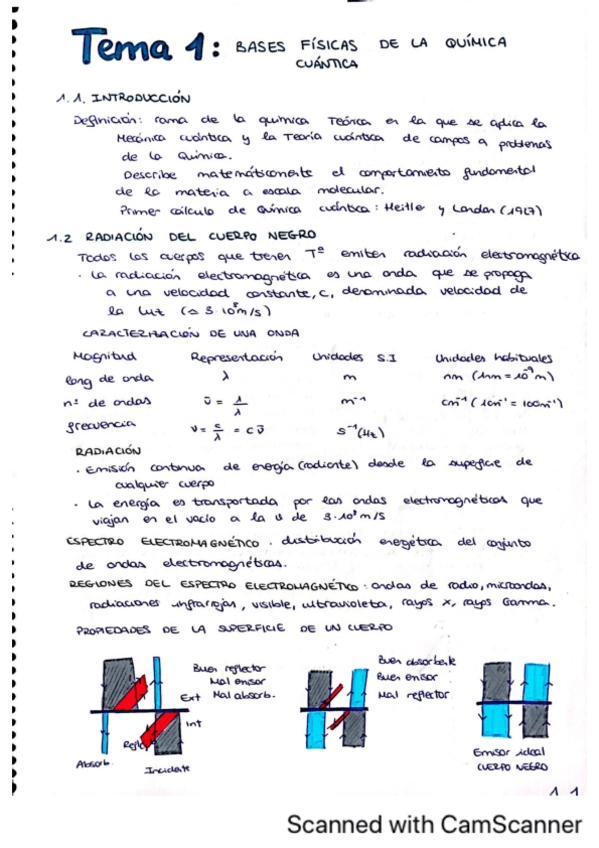 Tema 1: BASES FÍSICAS DE LA QUÍMICA
CUÁNTICA
1.1. INTRODUCCIÓN
Definición: rama de la química Teórica en la que se aplica la
Mecánica cuántica y la Teoría cuántica de campos a problemas
de la Química.
Describe matemáticamente el comportamiento fundamental
de la materia a escala molecular.
Primer cálculo de Química cuántica: Heitler y London (1927)
1.2 RADIACIÓN DEL CUERPO NEGRO
Todos los cuerpos que tienen Tª emiten radiación electromagnética
· La radiación electromagnética es una onda que se propaga
a una velocidad constante, c, denominada velocidad de
la luz (≃ 3·10⁸m/s)
CARACTERIZACIÓN DE UNA ONDA
Magnitud Representación Unidades S.I Unidades habituales
long de onda λ m nm (1nm = 10⁻⁹m)
nº de ondas ῡ = 1/λ m⁻¹ cm⁻¹ (1cm⁻¹ = 100m⁻¹)
frecuencia ν = c/λ = c ῡ s⁻¹ (Hz)
RADIACIÓN
· Emisión continua de energía (radiante) desde la superficie de
cualquier cuerpo
· La energía es transportada por las ondas electromagnéticas que
viajan en el vacío a la v de 3·10⁸ m/s
ESPECTRO ELECTROMAGNÉTICO. distribución energética del conjunto
de ondas electromagnéticas.
REGIONES DEL ESPECTRO ELECTROMAGNÉTICO: ondas de radio, microondas,
radiaciones infrarrojas, visible, ultravioleta, rayos X, rayos Gamma.
PROPIEDADES DE LA SUPERFICIE DE UN CUERPO
Buen reflector
Mal emisor
Mal absorb.
Ext
Int
Refle
Absorb.
Incidente
Buen absorbente
Buen emisor
Mal reflector
Emisor ideal
CUERPO NEGRO
Scanned with CamScanner